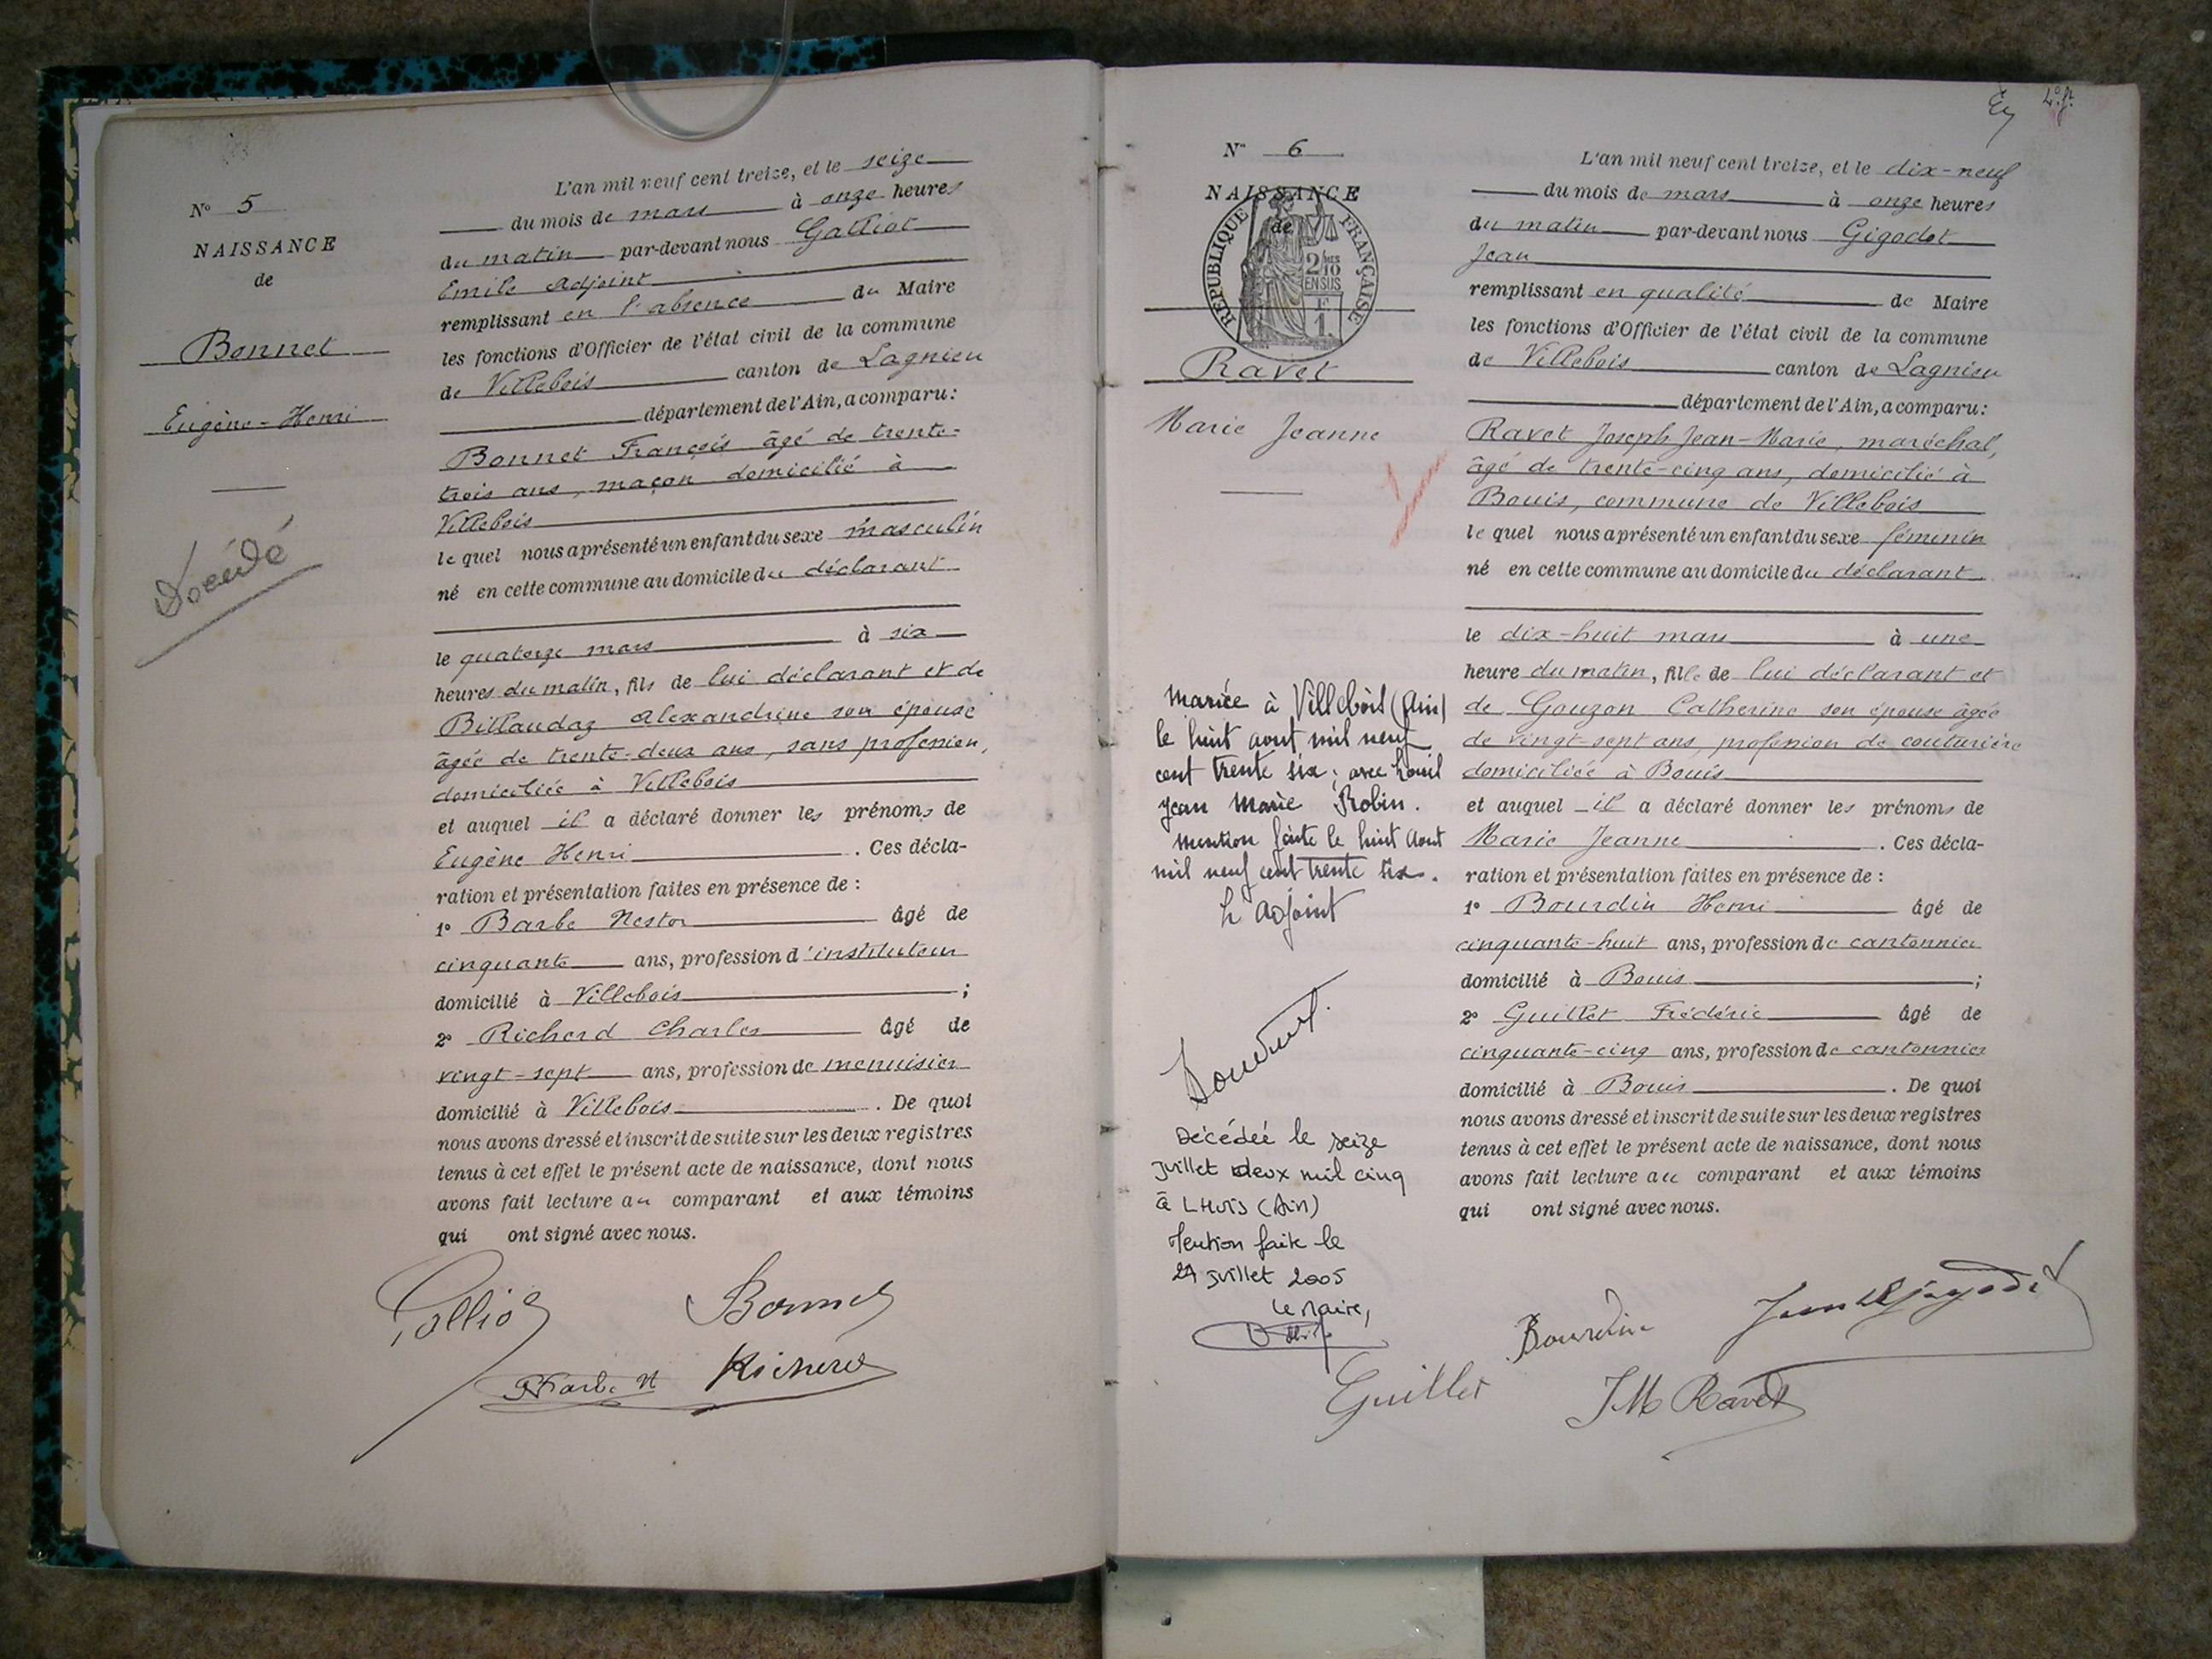 N° 5
NAISSANCE
de
Bonnet
Eugène-Henri
Décédé
L'an mil neuf cent treize, et le seize
du mois de mars à onze heures
du matin par-devant nous Galliot
Emile Adjoint
remplissant en l'absence du Maire
les fonctions d'Officier de l'état civil de la commune
de Villebois canton de Lagnieu
département de l'Ain, a comparu:
Bonnet François âgé de trente-
trois ans, maçon domicilié à
Villebois
le quel nous a présenté un enfant du sexe masculin
né en cette commune au domicile du déclarant
le quatorze mars à six
heures du matin, fils de lui déclarant et de
Billaudaz Alexandrine son épouse
âgée de trente-deux ans, sans profession,
domiciliée à Villebois
et auquel il a déclaré donner les prénoms de
Eugène Henri. Ces décla-
ration et présentation faites en présence de :
1° Barbe Nestor âgé de
cinquante ans, profession d'instituteur
domicilié à Villebois ;
2° Richerd Charles âgé de
vingt-sept ans, profession de menuisier
domicilié à Villebois. De quoi
nous avons dressé et inscrit de suite sur les deux registres
tenus à cet effet le présent acte de naissance, dont nous
avons fait lecture au comparant et aux témoins
qui ont signé avec nous.
Galliot Bonnet
Barbe N Richerd
N° 6
NAISSANCE
de
REPUBLIQUE FRANÇAISE
2/10 EN SUS
F
1.
Ravet
Marie Jeanne
Mariée à Villebois (Ain)
le huit aout mil neuf
cent trente six; avec
Jean Marie Robin.
Mention faite le huit Aout
mil neuf cent trente six.
L'Adjoint
Décédée le seize
juillet deux mil cinq
à LHUIS (Ain)
Mention faite le
juillet 2005
Le Maire,
L'an mil neuf cent treize, et le dix-neuf
du mois de mars à onze heures
du matin par-devant nous Gigodot
Jean
remplissant en qualité de Maire
les fonctions d'Officier de l'état civil de la commune
de Villebois canton de Lagnieu
département de l'Ain, a comparu:
Ravet Joseph Jean-Marie, maréchal,
âgé de trente-cinq ans, domicilié à
Bouis, commune de Villebois
le quel nous a présenté un enfant du sexe féminin
né en cette commune au domicile du déclarant
le dix-huit mars à une
heure du matin, fille de lui déclarant et
de Gouzon Catherine son épouse âgée
de vingt-sept ans, profession de couturière
domiciliée à Bouis
et auquel il a déclaré donner les prénoms de
Marie Jeanne. Ces décla-
ration et présentation faites en présence de :
1° Bourdin Henri âgé de
cinquante-huit ans, profession de cantonnier
domicilié à Bouis ;
2° Guillet Frédéric âgé de
cinquante-cinq ans, profession de cantonnier
domicilié à Bouis. De quoi
nous avons dressé et inscrit de suite sur les deux registres
tenus à cet effet le présent acte de naissance, dont nous
avons fait lecture au comparant et aux témoins
qui ont signé avec nous.
Bourdin Jean Gigodot
Guillet JM Ravet